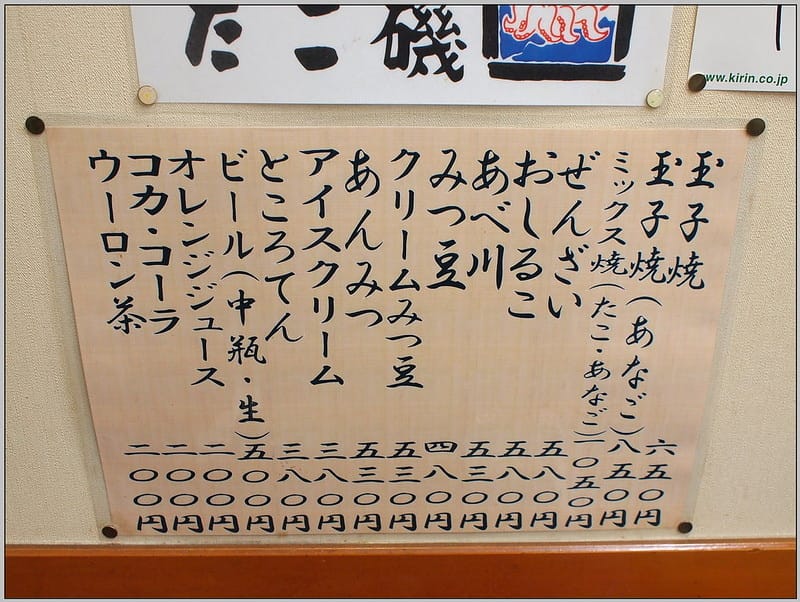 たこ磯
www.kirin.co.jp
玉子焼 六五〇円
玉子焼(あなご) 八五〇円
ミックス焼(たこ・あなご) 一〇五〇円
ぜんざい 五八〇円
おしるこ 五八〇円
あべ川 五三〇円
みつ豆 四八〇円
クリームみつ豆 五三〇円
あんみつ 五三〇円
アイスクリーム 三八〇円
ところてん 三八〇円
ビール(中瓶・生) 五〇〇円
オレンジジュース 二〇〇円
コカ・コーラ 二〇〇円
ウーロン茶 二〇〇円